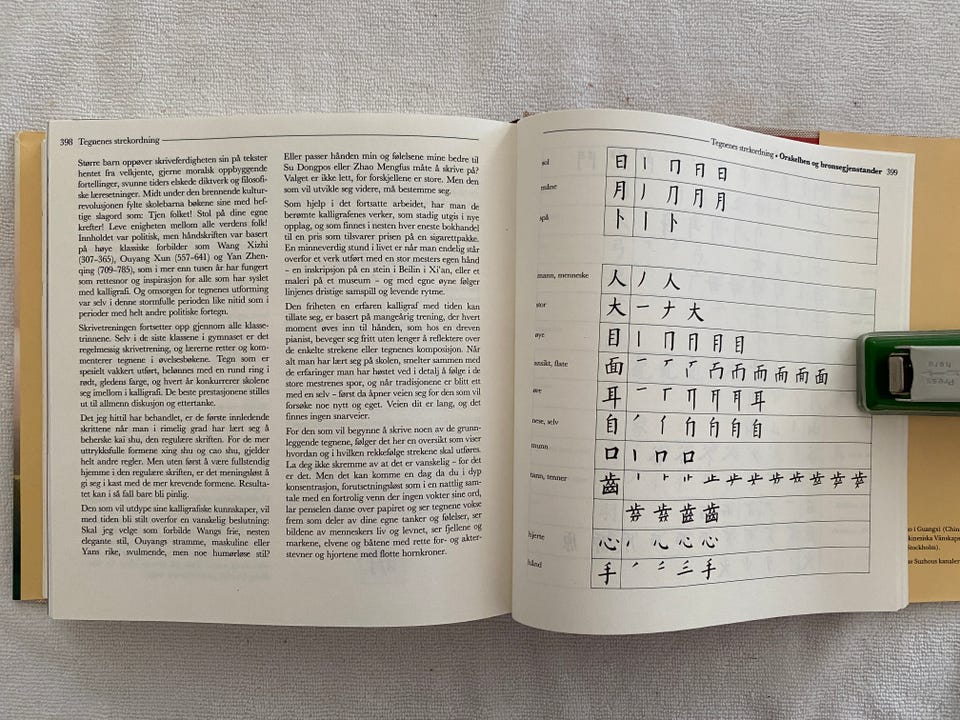 398 Tegnenes strekordning
Større barn oppøver skriveferdigheten sin på tekster
hentet fra velkjente, gjerne moralsk oppbyggende
fortellinger, svunne tiders elskede diktverk og filosofi-
ske læresetninger. Midt under den brennende kultur-
revolusjonen fylte skolebarna bøkene sine med hef-
tige slagord som: Tjen folket! Stol på dine egne
krefter! Leve enigheten mellom alle verdens folk!
Innholdet var politisk, men håndskriften var basert
på høye klassiske forbilder som Wang Xizhi
(307–365), Ouyang Xun (557–641) og Yan Zhen-
qing (709–785), som i mer enn tusen år har fungert
som rettesnor og inspirasjon for alle som har syslet
med kalligrafi. Og omsorgen for tegnenes utforming
var selv i denne stormfulle perioden like nitid som i
perioder med helt andre politiske fortegn.
Skrivetreningen fortsetter opp gjennom alle klasse-
trinnene. Selv i de siste klassene i gymnaset er det
regelmessig skrivetrening, og lærerne retter og kom-
menterer tegnene i øvelsesbøkene. Tegn som er
spesielt vakkert utført, belønnes med en rund ring i
rødt, gledens farge, og hvert år konkurrerer skolene
seg imellom i kalligrafi. De beste prestasjonene stilles
ut til allmenn diskusjon og ettertanke.
Det jeg hittil har behandlet, er de første innledende
skrittene når man i rimelig grad har lært seg å
beherske kai shu, den regulære skriften. For de mer
uttrykksfulle formene xing shu og cao shu, gjelder
helt andre regler. Men uten først å være fullstendig
hjemme i den regulære skriften, er det meningsløst å
gi seg i kast med de mer krevende formene. Resulta-
tet kan i så fall bare bli pinlig.
Den som vil utdype sine kalligrafiske kunnskaper, vil
med tiden bli stilt overfor en vanskelig beslutning:
Skal jeg velge som forbilde Wangs frie, nesten
elegante stil, Ouyangs stramme, maskuline eller
Yans rike, svulmende, men noe humørløse stil?
Eller passer hånden min og følelsene mine bedre til
Su Dongpos eller Zhao Mengfius måte å skrive på?
Valget er ikke lett, for forskjellene er store. Men den
som vil utvikle seg videre, må bestemme seg.
Som hjelp i det fortsatte arbeidet, har man de
berømte kalligrafenes verker, som stadig utgis i nye
opplag, og som finnes i nesten hver eneste bokhandel
til en pris som tilsvarer prisen på en sigarettpakke.
En minneverdig stund i livet er når man endelig står
overfor et verk utført med en stor mesters egen hånd
– en inskripsjon på en stein i Beilin i Xi'an, eller et
maleri på et museum – og med egne øyne følger
linjenes dristige samspill og levende rytme.
Den friheten en erfaren kalligraf med tiden kan
tillate seg, er basert på mangeårig trening, der hvert
moment øves inn til hånden, som hos en dreven
pianist, beveger seg fritt uten lenger å reflektere over
de enkelte strekene eller tegnenes komposisjon. Når
alt man har lært seg på skolen, smelter sammen med
de erfaringer man har høstet ved i detalj å følge i de
store mestrenes spor, og når tradisjonene er blitt ett
med en selv – først da åpner veien seg for den som vil
forsøke noe nytt og eget. Veien dit er lang, og det
finnes ingen snarveier.
For den som vil begynne å skrive noen av de grunn-
leggende tegnene, følger det her en oversikt som viser
hvordan og i hvilken rekkefølge strekene skal utføres.
La deg ikke skremme av at det er vanskelig – for det
er det. Men det kan komme en dag da du i dyp
konsentrasjon, forutsetningsløst som i en nattlig sam-
tale med en fortrolig venn der ingen vokter sine ord,
lar penselen danse over papiret og ser tegnene vokse
frem som deler av dine egne tanker og følelser, ser
bildene av menneskers liv og levnet, ser fjellene og
markene, elvene og båtene med rette for- og akter-
stevner og hjortene med flotte hornkroner.
Tegnenes strekordning • Orakelben og bronsegjenstander 399
sol 日 丨 冂 月 日
måne 月 丿 冂 月 月
spå 卜 丨 卜
mann, menneske 人 丿 人
stor 大 一 ナ 大
øye 目 丨 冂 月 月 目
ansikt, flate 面
øre 耳
nese, selv 自
munn 口 丨 冂 口
tann, tenner 齒
齒
hjerte 心
hånd 手
Press
here